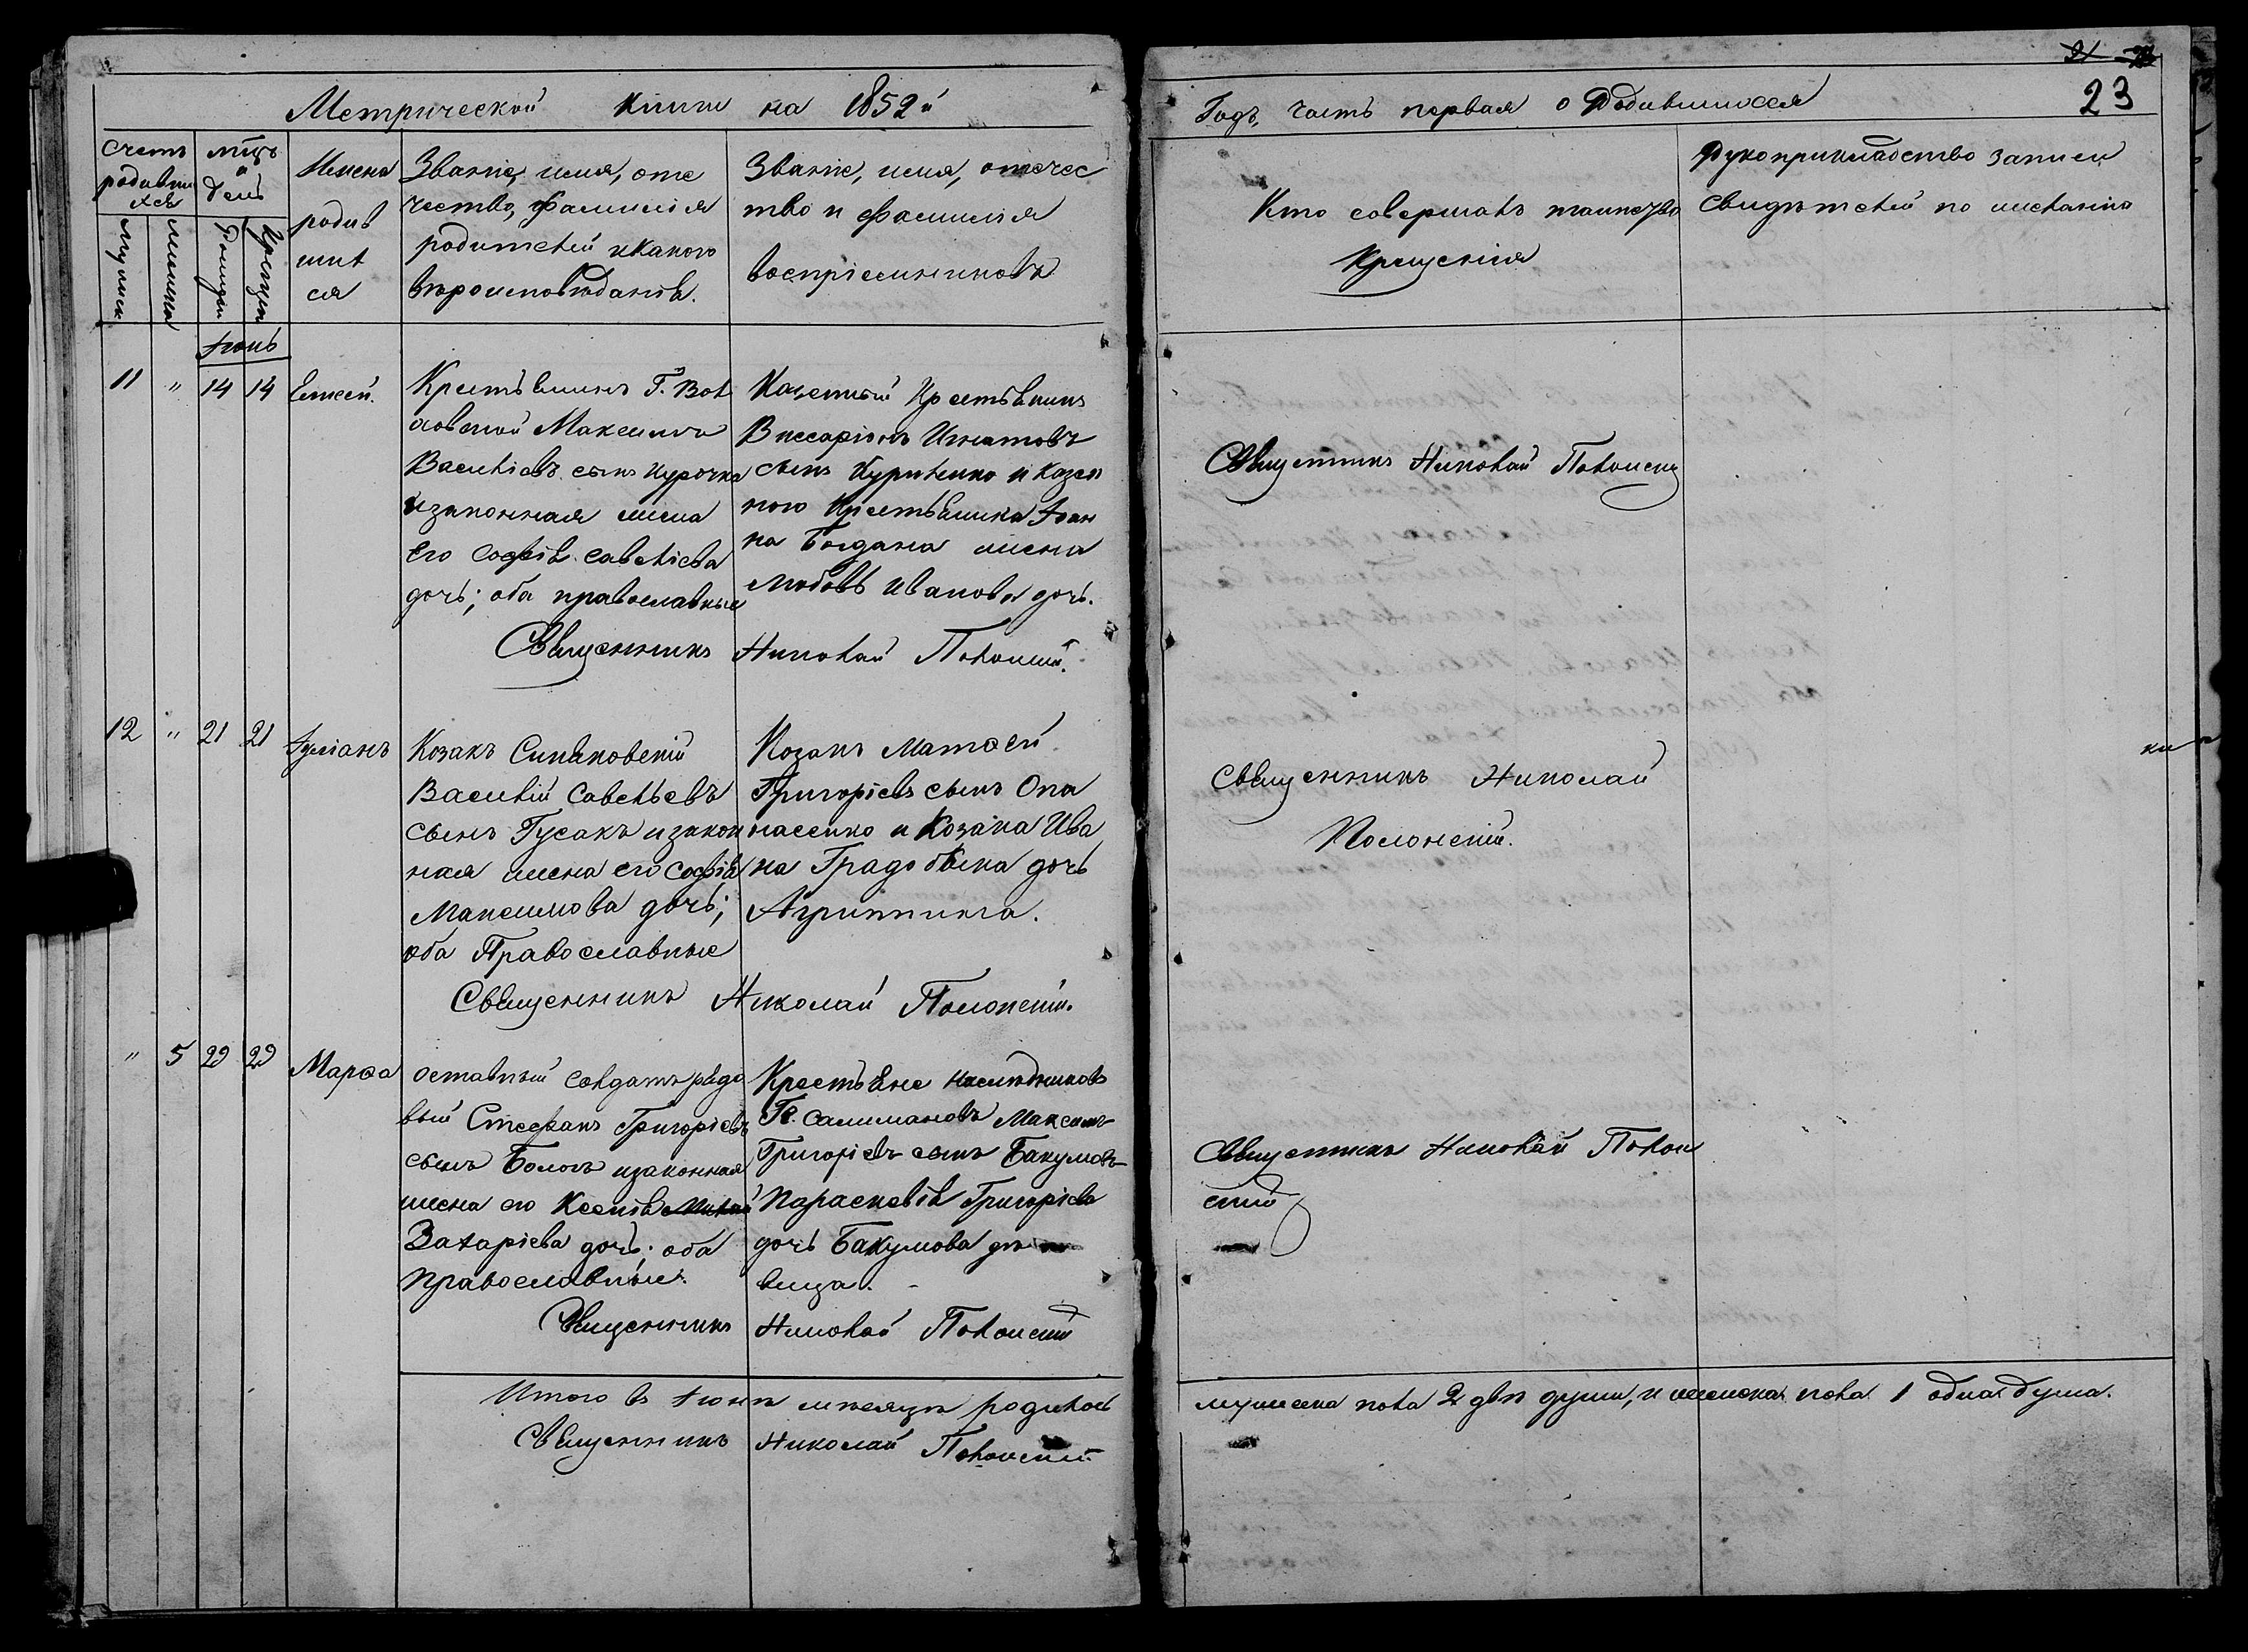 Метрической книги на 1852й
Годъ, часть первая о Родившихся
23
Счетъ родившихся
мѣсяцъ и день
мужска
женска
Рождения
Крещен
Имена
родив
шихъ
ся
Званіе, имя, оте
чество, фамилія
родителей и какого
вѣроисповѣданія.
Званіе, имя, отечес
тво и фамилія
воспріемниковъ
Кто совершалъ таинство
Крещенія
Рукоприкладство записи
свидѣтелей по желанію
Іюнь
11 " 14 14
Елисей.
Крестьянинъ Г.
Максимъ
Василіевъ сынъ Курочка
и законная жена
его Софія Савеліева
дочь; оба православные
Казенный Крестьянинъ
Виссаріонъ Игнатовъ
сынъ Куриленко и казен
ного Крестьянина Іоан
на Богдана жена
Любовь Иванова дочь.
Священникъ Николай Полонскій
Священникъ Николай Полонскій.
12 " 21 21
Іуліанъ
Козакъ Синяковскій
Василій Савельевъ
сынъ Гусакъ и закон
ная жена его Софія
Максимова дочь;
оба Православные
Козакъ Матфей
Григоріевъ сынъ Опа
насенко и Козака Ива
на Градобыка дочь
Агрипина.
Священникъ Николай
Полонскій.
Священникъ Николай Полонскій.
" 5 29 29
Марфа
оставный солдатъ рядо
вый Стефанъ Григоріевъ
сынъ Бологъ и законная
жена его Ксенія
Захаріева дочь; оба
православные.
Крестьяне наслѣдниковъ
Гг. Салимановъ Максимъ
Григоріевъ сынъ Бакумовъ
Параскевія Григоріева
дочь Бакумова дѣ
вица.
Священникъ Николай Полон
скій
Священникъ Николай Полонскій
Итого въ Іюнѣ мѣсяцѣ родилось
мужеска пола 2 двѣ души, и женска пола 1 одна душа.
Священникъ Николай Полонскій.